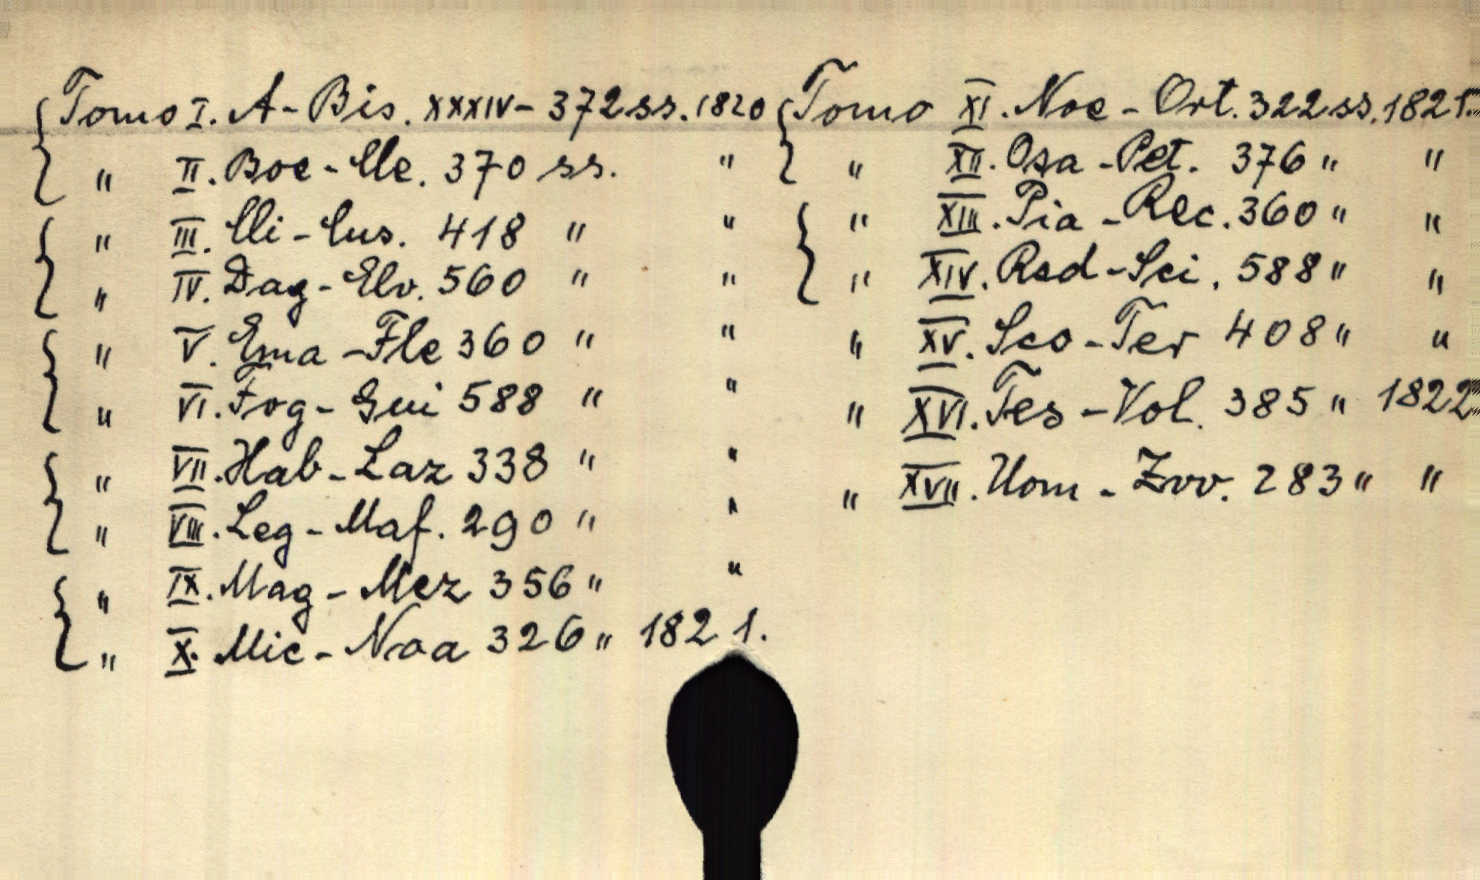 Tomo I. A-Bis. XXXIV-372 ss. 1820
" II. Boc-Cle. 370 ss. "
" III. Cli-Cus. 418 " "
" IV. Dag-Elv. 560 " "
" V. Ema-Fle 360 " "
" VI. Fog-Gui 588 " "
" VII. Hab-Laz 338 " "
" VIII. Leg-Maf. 290 " "
" IX. Mag-Mez 356 " "
" X. Mic-Naa 326 " 1821.
Tomo XI. Noe-Ort. 322 ss. 1821.
" XII. Osa-Pet. 376 " "
" XIII. Pia-Rec. 360 " "
" XIV. Red-Sci. 588 " "
" XV. Sco-Ter 408 " "
" XVI. Tes-Vol. 385 " 1822
" XVII. Uom-Zvv. 283 " "